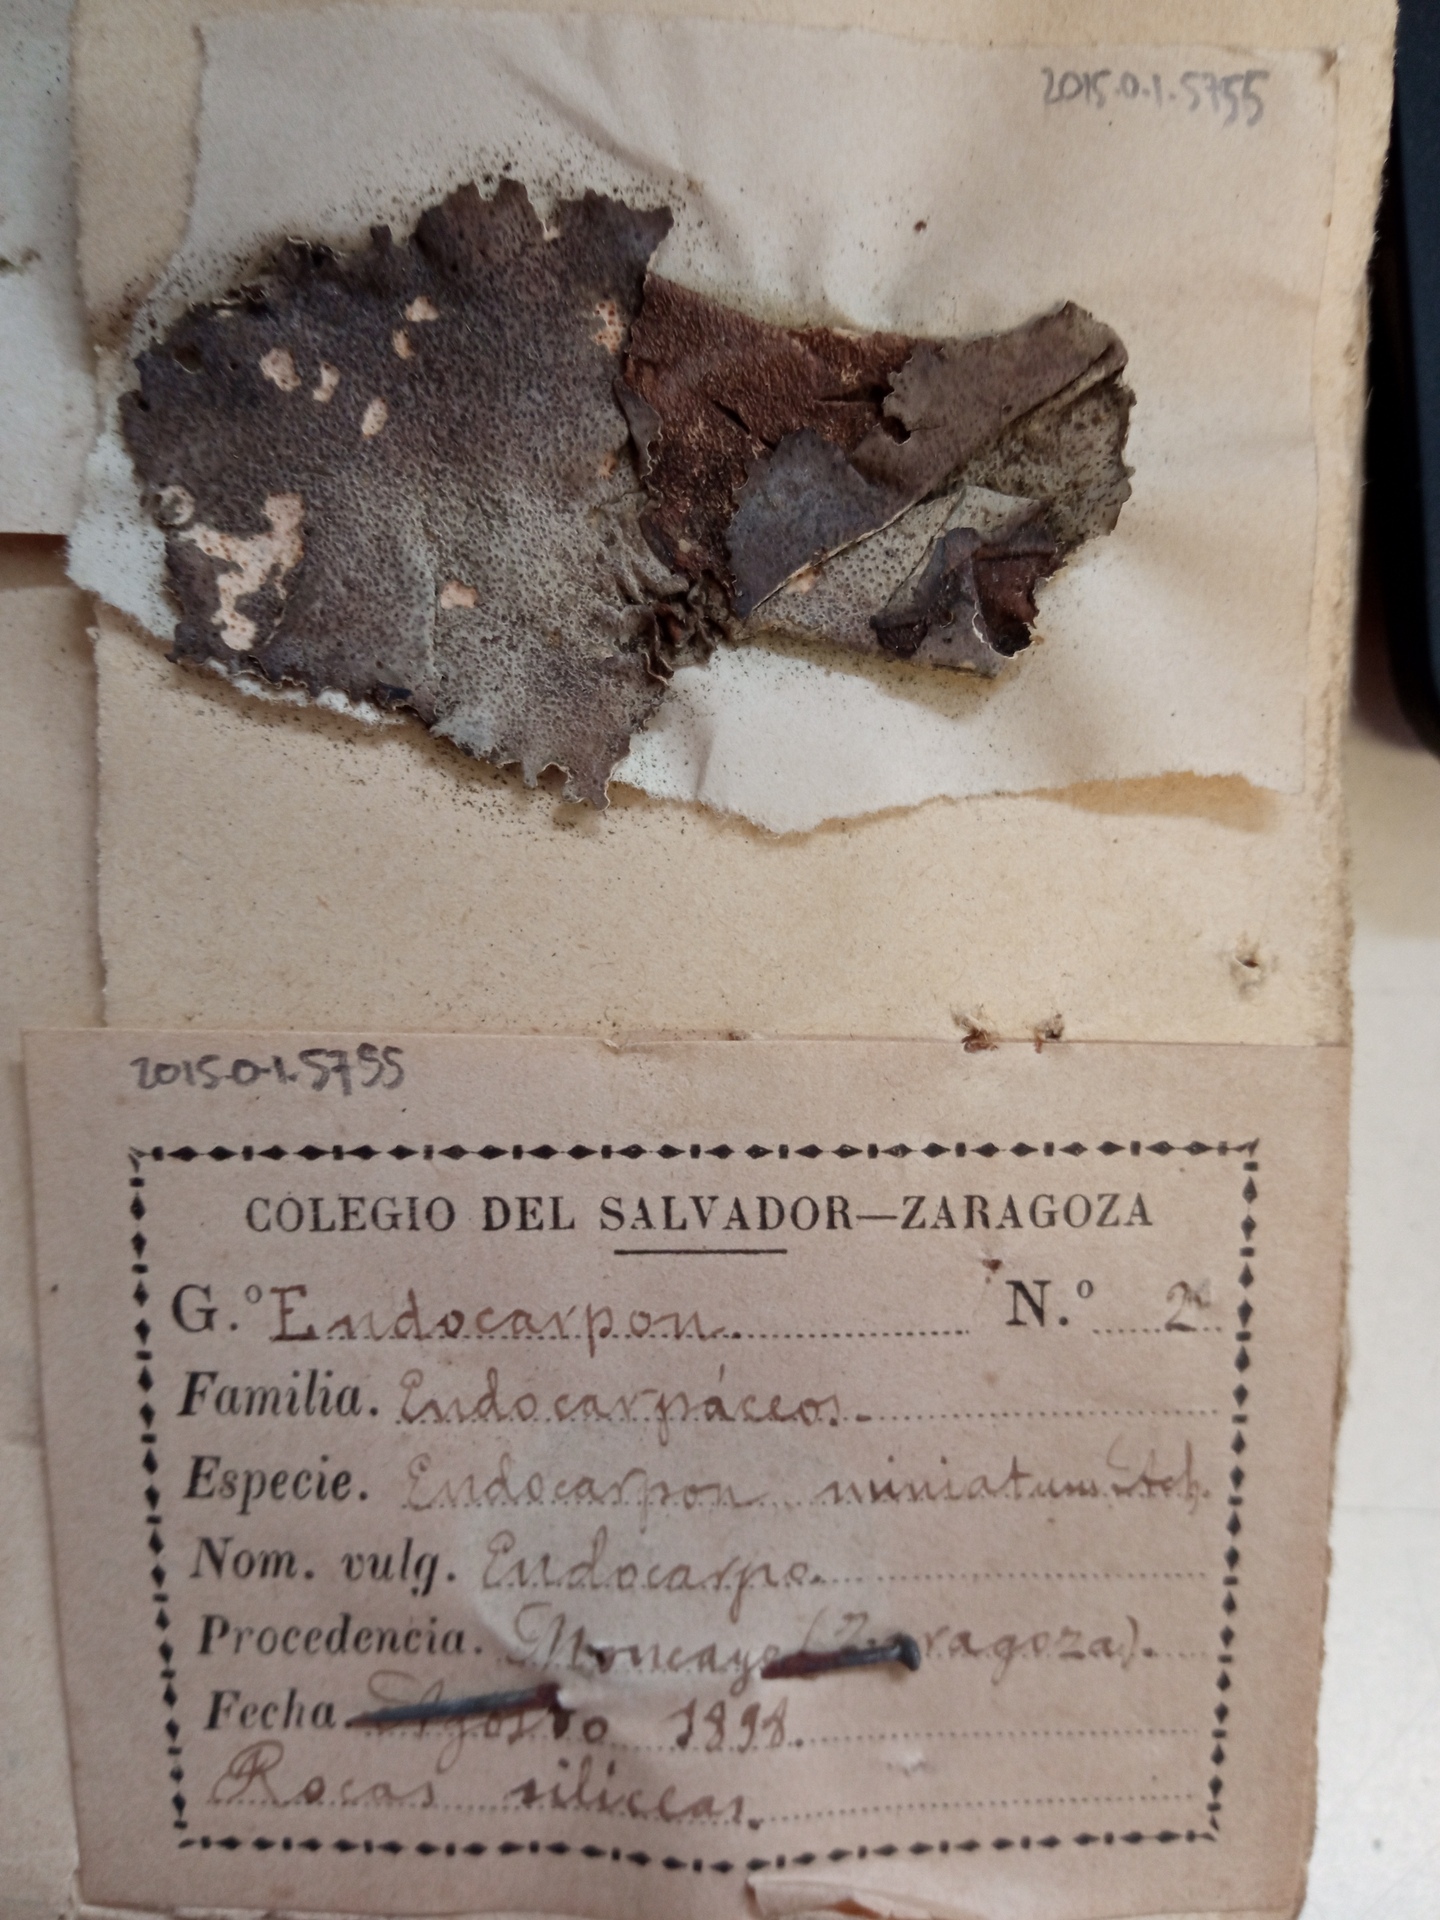 2015.0.1.5755
2015.0.1.5755
COLEGIO DEL SALVADOR—ZARAGOZA
G.º Endocarpon. N.º 2
Familia. Endocarpáceos.
Especie. Endocarpon miniatum Ach.
Nom. vulg. Endocarpo.
Procedencia. Moncayo (Zaragoza).
Fecha Agosto 1898.
Rocas silíceas.